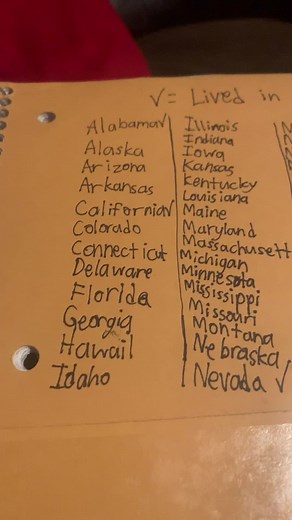 √= Lived in
Alabama√
Alaska
Arizona
Arkansas
California√
Colorado
Connecticut
Delaware
Florida
Georgia
Hawaii
Idaho
Illinois
Indiana
Iowa
Kansas
Kentucky
Louisiana
Maine
Maryland
Massachusett
Michigan
Minnesota
Mississippi
Missouri
Montana
Nebraska
Nevada √